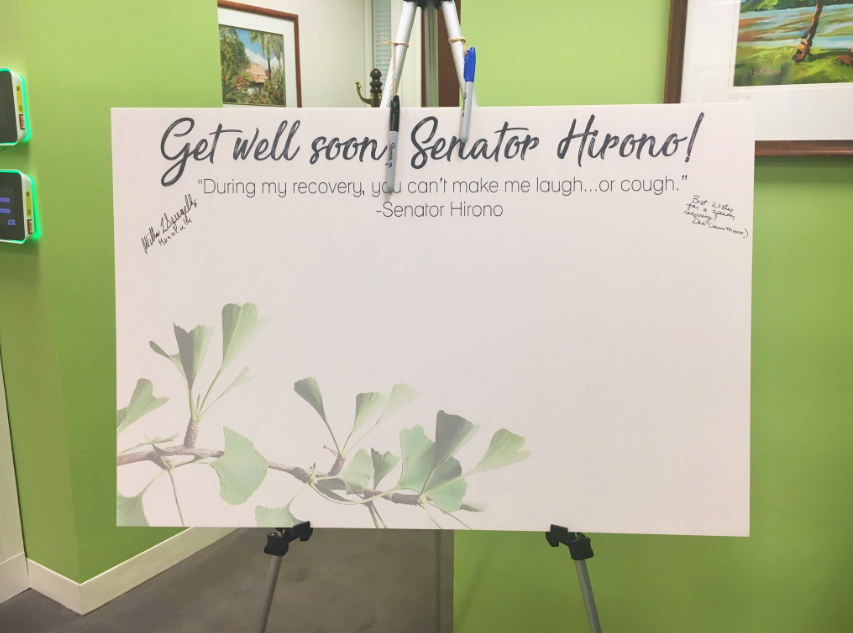 Get well soon, Senator Hirono!
"During my recovery, you can't make me laugh...or cough."
-Senator Hirono
Honolulu
Best Wishes
for a speedy
recovery!